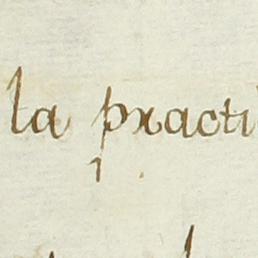 la practi